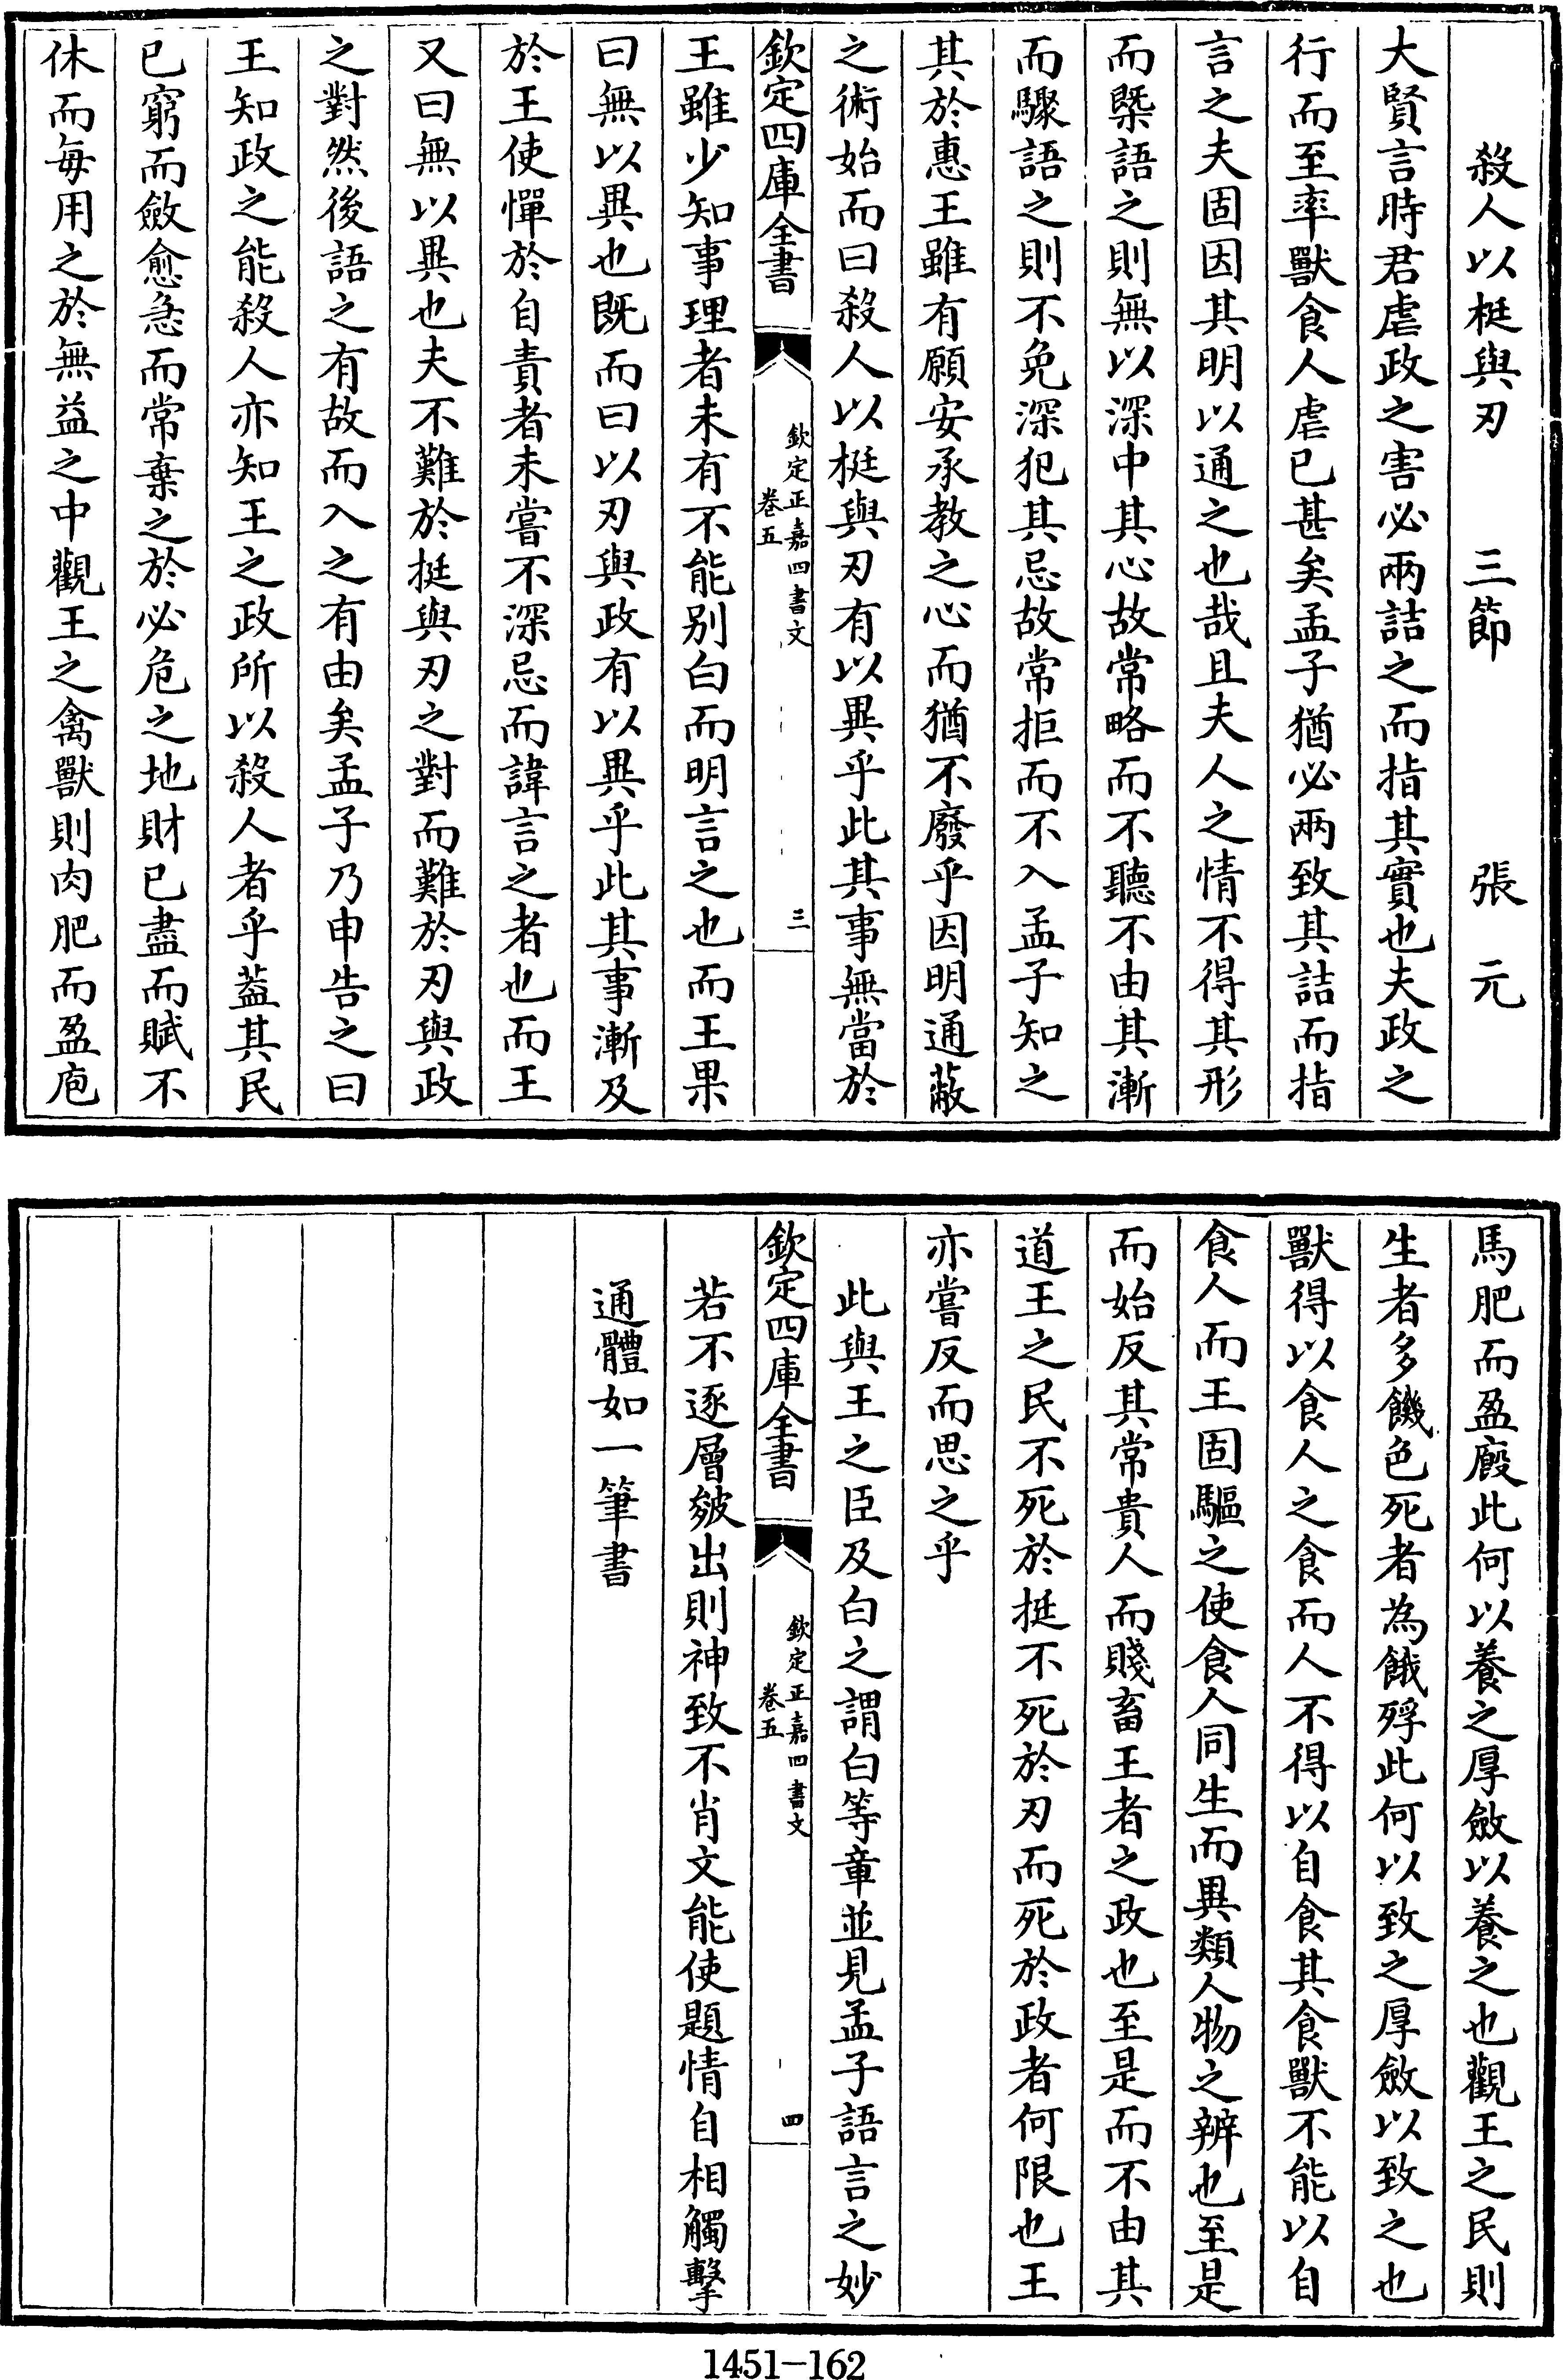 殺人以梃與刃　三節　張元
大賢言時君虐政之害必兩詰之而指其實也夫政之
行而至率獸食人虐已甚矣孟子猶必兩致其詰而指
言之夫固因其明以通之也哉且夫人之情不得其形
而槩語之則無以深中其心故常略而不聽不由其漸
而驟語之則不免深犯其忌故常拒而不入孟子知之
其於惠王雖有願安承教之心而猶不廢乎因明通蔽
之術始而曰殺人以梃與刃有以異乎此其事無當於
欽定四庫全書
欽定正嘉四書文
卷五
三
王雖少知事理者未有不能別白而明言之也而王果
曰無以異也既而曰以刃與政有以異乎此其事漸及
於王使憚於自責者未嘗不深忌而諱言之者也而王
又曰無以異也夫不難於挺與刃之對而難於刃與政
之對然後語之有故而入之有由矣孟子乃申告之曰
王知政之能殺人亦知王之政所以殺人者乎蓋其民
已窮而斂愈急而常棄之於必危之地財已盡而賦不
休而每用之於無益之中觀王之禽獸則肉肥而盈庖
馬肥而盈廐此何以養之厚斂以養之也觀王之民則
生者多饑色死者為餓殍此何以致之厚斂以致之也
獸得以食人之食而人不得以自食其食獸不能以自
食人而王固驅之使食人同生而異類人物之辨也至是
而始反其常貴人而賤畜王者之政也至是而不由其
道王之民不死於挺不死於刃而死於政者何限也王
亦嘗反而思之乎
此與王之臣及白之謂白等章並見孟子語言之妙
欽定四庫全書
欽定正嘉四書文
卷五
四
若不逐層皴出則神致不肖文能使題情自相觸擊
通體如一筆書
1451-162